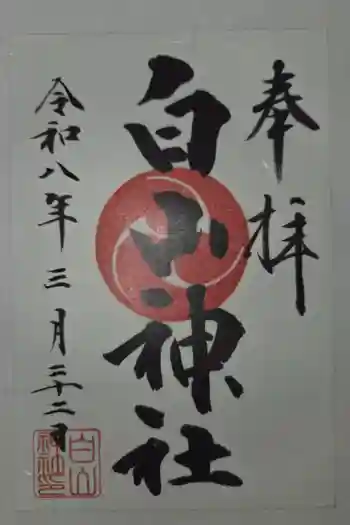 奉拝
白山神社
令和八年三月二十二日
白山